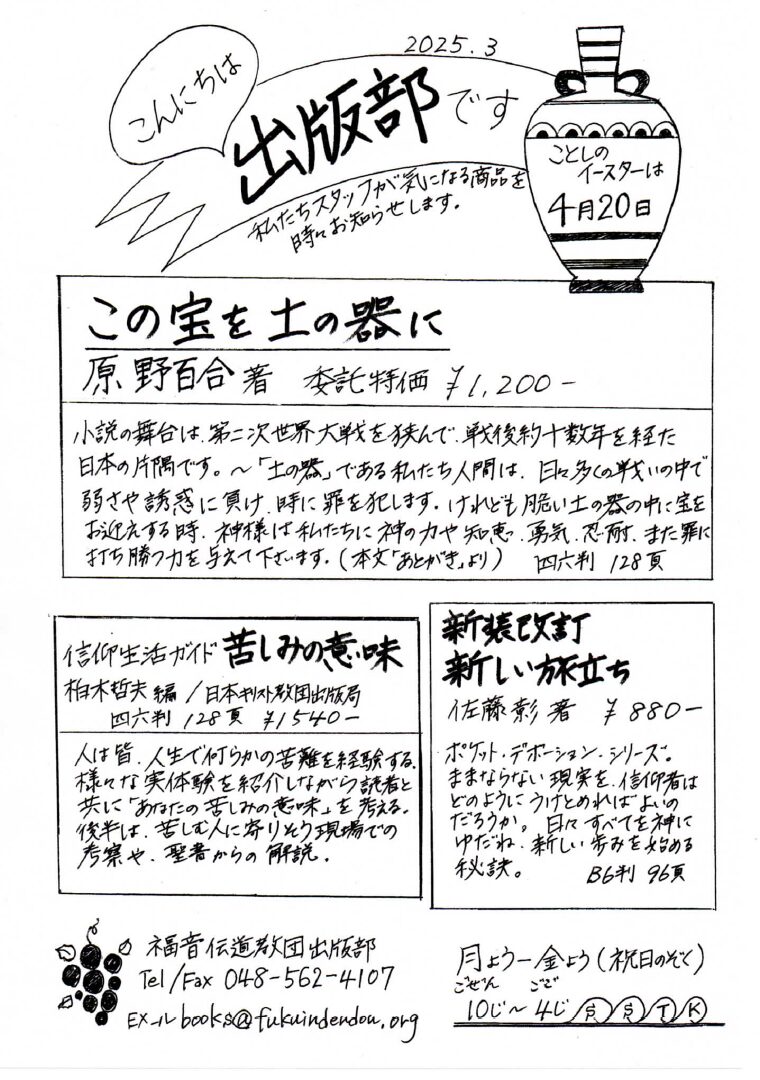 2025.3
こんにちは
出版部です
私たちスタッフが気になる商品を
時々お知らせします。
ことしの
イースターは
4月20日
この宝を土の器に
原野百合著 委託特価 ¥1,200-
小説の舞台は、第二次世界大戦を挟んで、戦後約十数年を経た
日本の片隅です。～「土の器」である私たち人間は、日々多くの戦いの中で
弱さや誘惑に負け、時に罪を犯します。けれども脆い土の器の中に宝を
お迎えする時、神様は私たちに神の力や知恵、勇気、忍耐、また罪に
打ち勝つ力を与えて下さいます。(本文「あとがき」より) 四六判 128頁
信仰生活ガイド 苦しみの意味
柏木哲夫編/日本キリスト教団出版局
四六判 128頁 ¥1540-
人は皆、人生で何らかの苦難を経験する。
様々な実体験を紹介しながら読者と
共に「あなたの苦しみの意味」を考える。
後半は、苦しむ人に寄りそう現場での
考察や、聖書からの解説。
新装改訂
新しい旅立ち
佐藤彰著 ¥880-
ポケット・デボーション・シリーズ。
ままならない現実を、信仰者は
どのようにうけとめればよいの
だろうか。日々すべてを神に
ゆだね、新しい歩みを始める
秘訣。 B6判 96頁
福音伝道教団出版部
Tel/Fax 048-562-4107
Eメール books@fukuindendou.org
月よう―金よう(祝日のぞく)
ごぜん ごご
10じ～4じ
T K